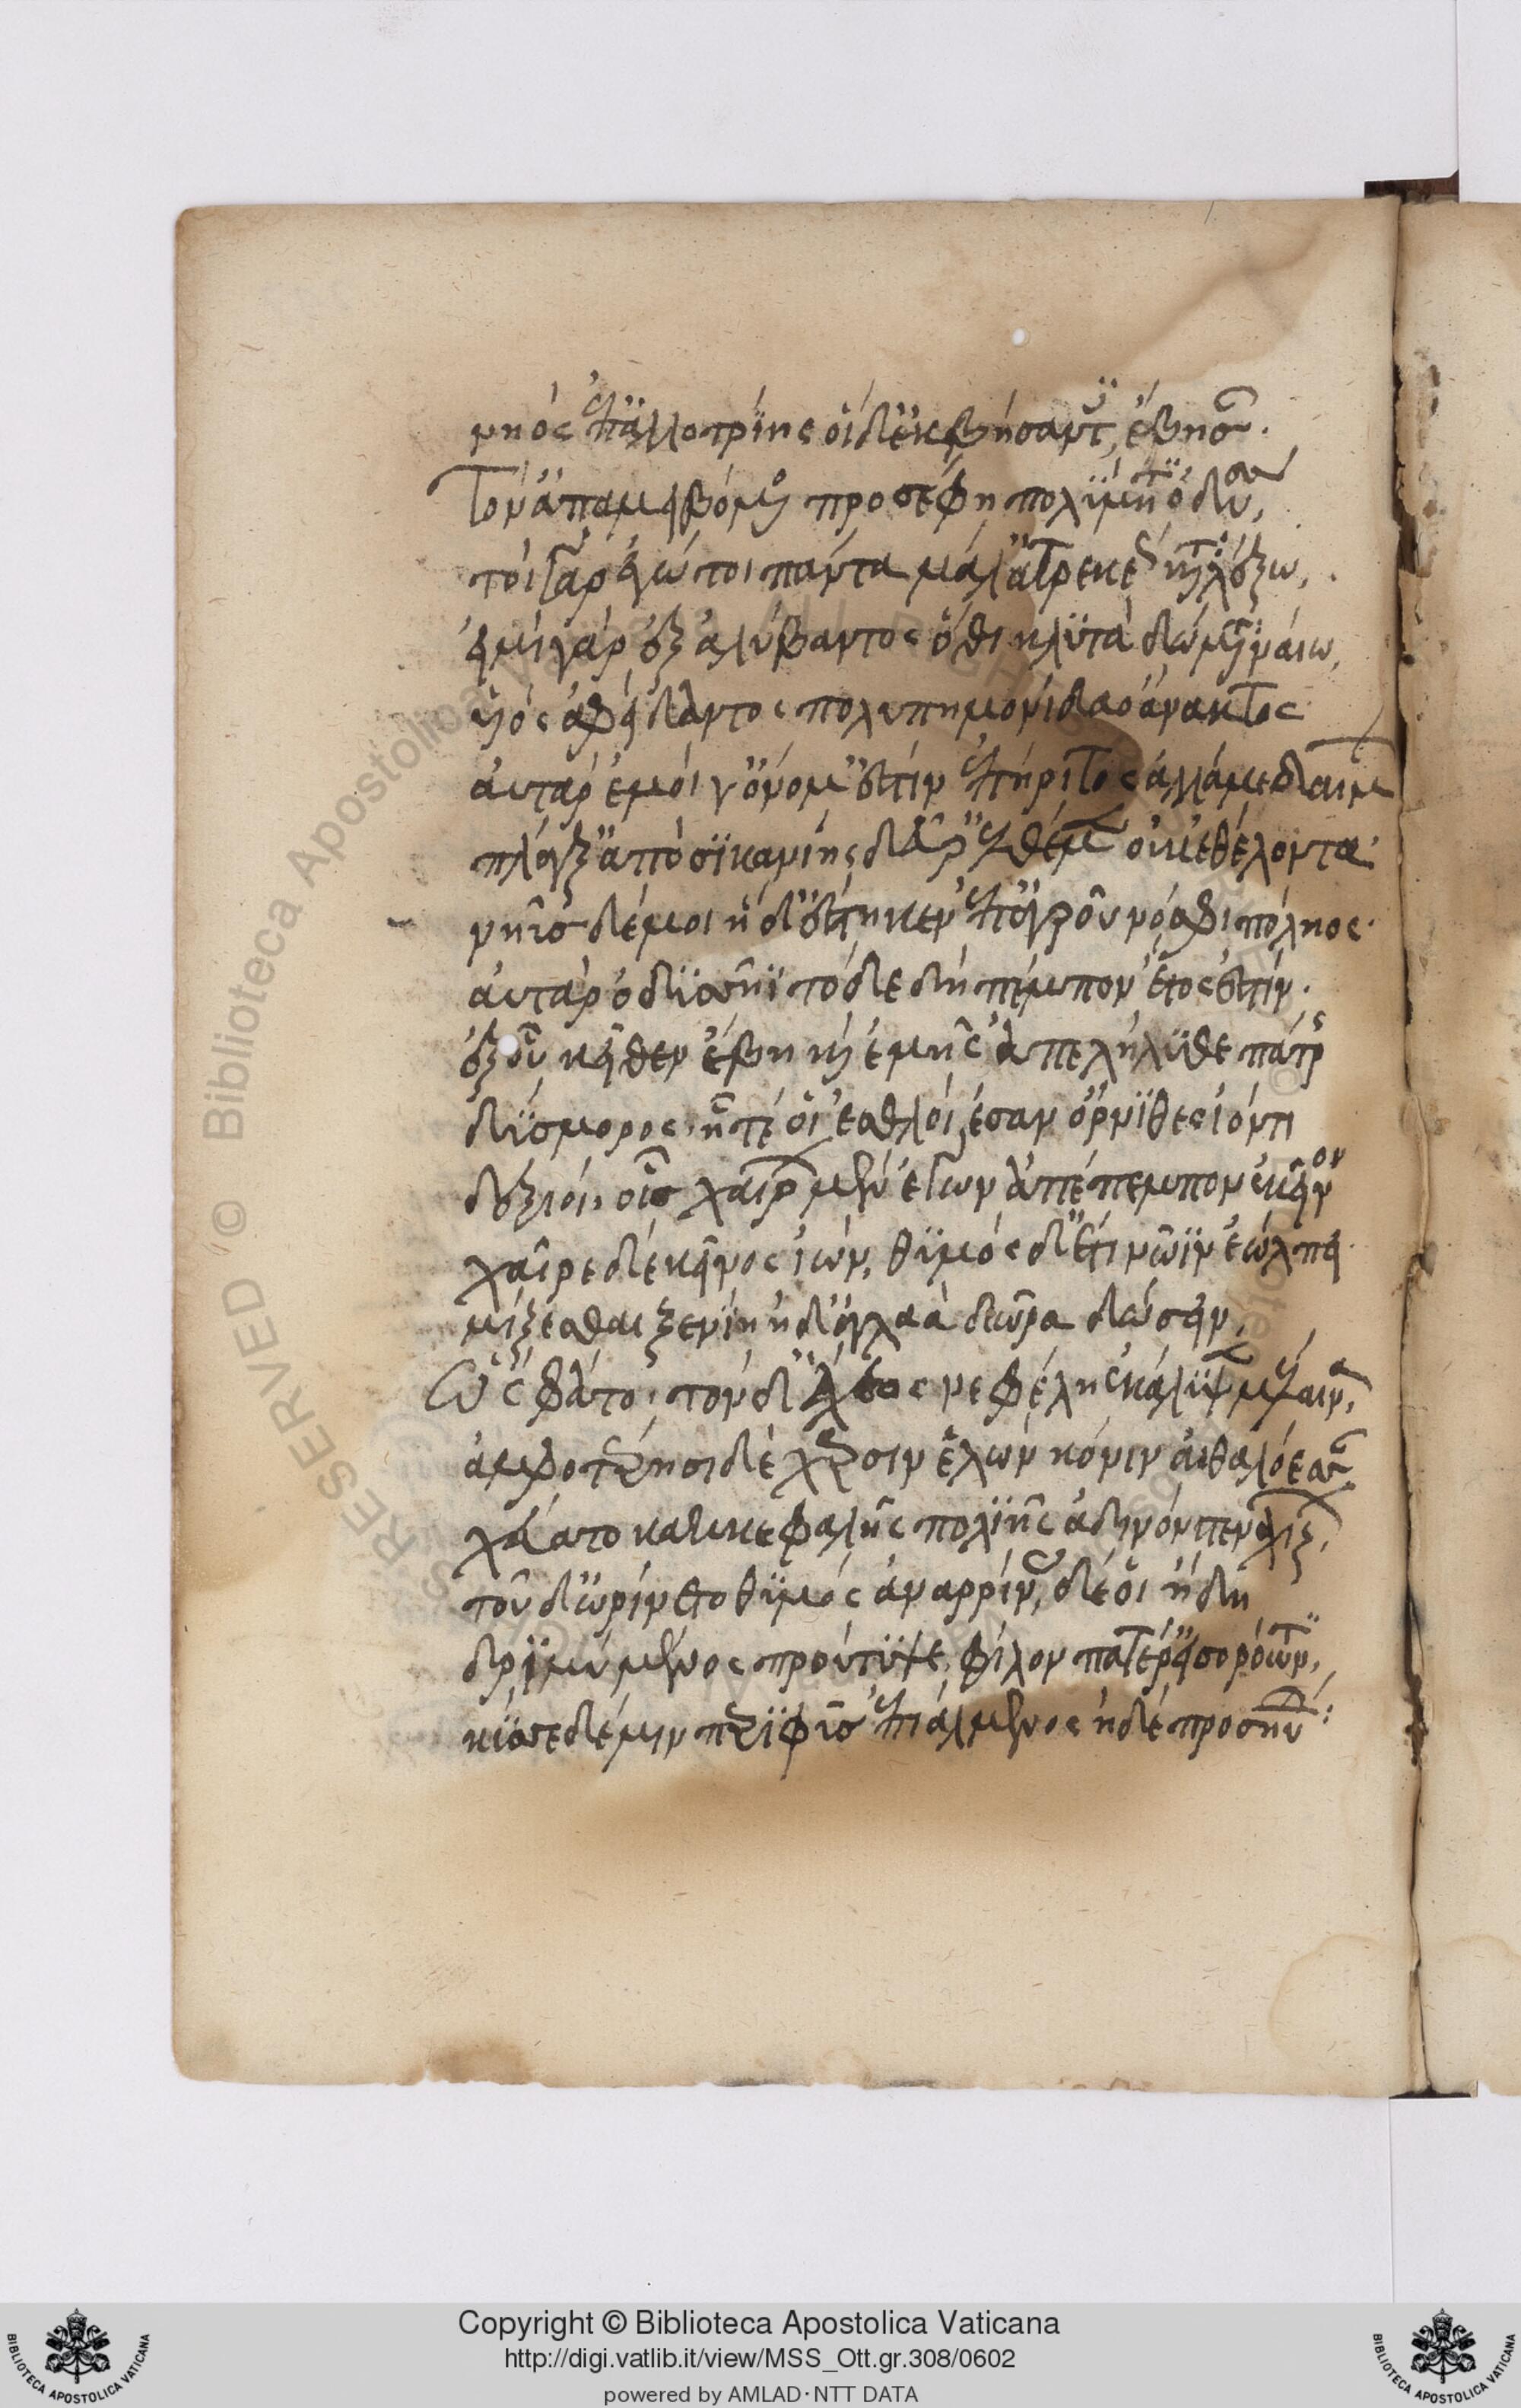 νηὸς ἐπ' ἀλλοτρίης· οἱ δ' ἐκβήσαντες ἔβησαν.
Τὸν δ' ἀπαμειβόμενος προσέφη πολύμητις ὀδυσσεύς,
τοὶ γὰρ ἐγώ τοι πάντα μάλ' ἀτρεκέως καταλέξω,
εἰμὶ γὰρ ἐξ ἀλύβαντος ὅθι κλυτὰ δώματα ναίω,
υἱὸς ἀφείδαντος πολυπημονίδαο ἄνακτος
αὐτὰρ ἐμοί γ' ὄνομ' ἐστὶν ἐπήριτος ἀλλά με δαίμων
πλάγξ' ἀπὸ σικανίης δεῦρ' ἐλθέμεν οὐκ ἐθέλοντα·
νηῦς δέ μοι ἥδ' ἕστηκεν ἐπ' ἀγροῦ νόσφι πόληος·
αὐτὰρ ὀδυσῆϊ τόδε δὴ πέμπτον ἔτος ἐστίν·
ἐξ οὗ κεῖθεν ἔβη καὶ ἐμῆς ἀπελήλυθε πάτρης
δύσμορος· ἦ τέ οἱ ἐσθλοὶ ἔσαν ὄρνιθες ἰόντι
δεξιοί, οἷς χαίρων μὲν ἐγὼν ἀπέπεμπον ἐκεῖνον
χαῖρε δὲ κεῖνος ἰών, θυμὸς δ' ἔτι νῶϊν ἐώλπει
μίξεσθαι ξενίῃ ἠδ' ἀγλαὰ δῶρα διδώσειν,
Ὣς φάτο· τὸν δ' ἄχεος νεφέλη ἐκάλυψε μέλαινα,
ἀμφοτέρῃσι δὲ χερσὶν ἑλὼν κόνιν αἰθαλόεσσαν
χεύατο κακκεφαλῆς πολιῆς ἀδινὸν στεναχίζων,
τοῦ δ' ὠρίνετο θυμός ἀνὰ ῥῖνας δέ οἱ ἤδη
δριμὺ μένος προύτυψε, φίλον πατέρ' εἰσορόωντι,
κύσσε δέ μιν περιφὺς ἐπιάλμενος ἠδὲ προσηύδα:
Copyright © Biblioteca Apostolica Vaticana
http://digi.vatlib.it/view/MSS_Ott.gr.308/0602
powered by AMLAD·NTT DATA